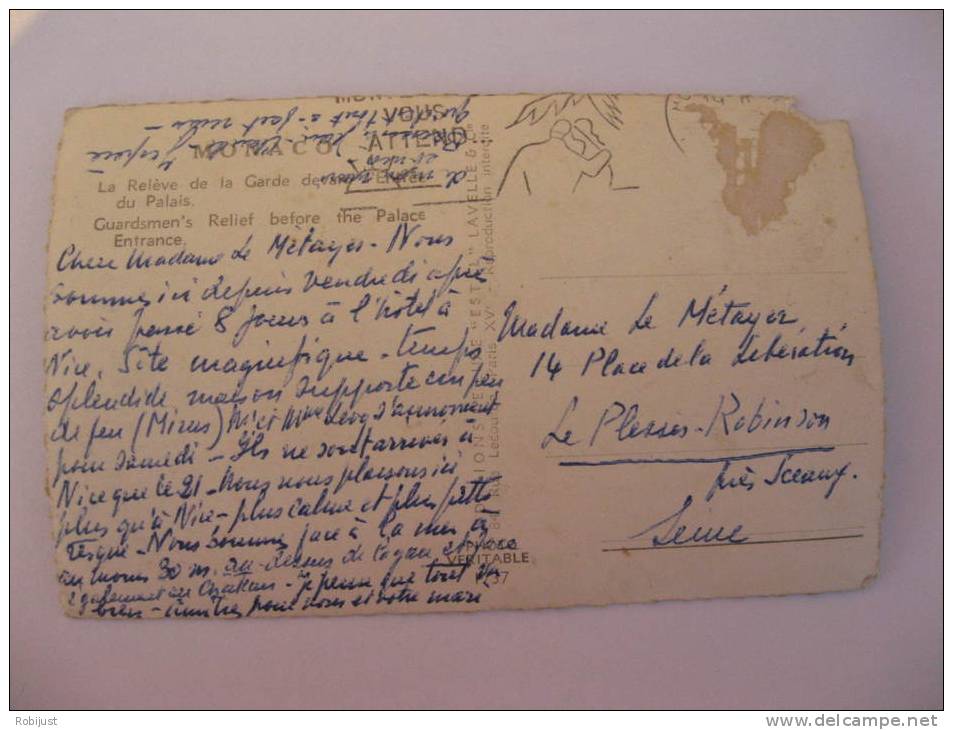 MONACO
La Relève de la Garde devant l'Entrée
du Palais.
Guardsmen's Relief before the Palace
Entrance.
VOUS
ATTEND
Chère Madame Le Métayer - Nous
sommes ici depuis vendredi après
avoir passé 8 jours à l'hôtel à
Nice. Site magnifique - temps
splendide maison supporte un peu
de feu (Mirus) Mr et Mme s'annoncent
pour samedi - Ils ne sont arrivés à
Nice que le 21 - Nous nous plaisons ici
plus qu'à Nice - plus calme et plus pitto
resque - Nous sommes face à la mer à
au moins 30 m. au-dessus de
également au Château - je pense que tout va
bien - amitiés pour vous et votre mari
de mon mari
J'espère
EDITIONS DE LUXE "ESTEL" LAVELLE & Cie
Rue Lecourbe, Paris XVe - Reproduction interdite
PHOTO
VERITABLE
Madame Le Métayer
14 Place de la Libération
Le Plessis-Robinson
près Sceaux.
Seine
Robijust
www.delcampe.net